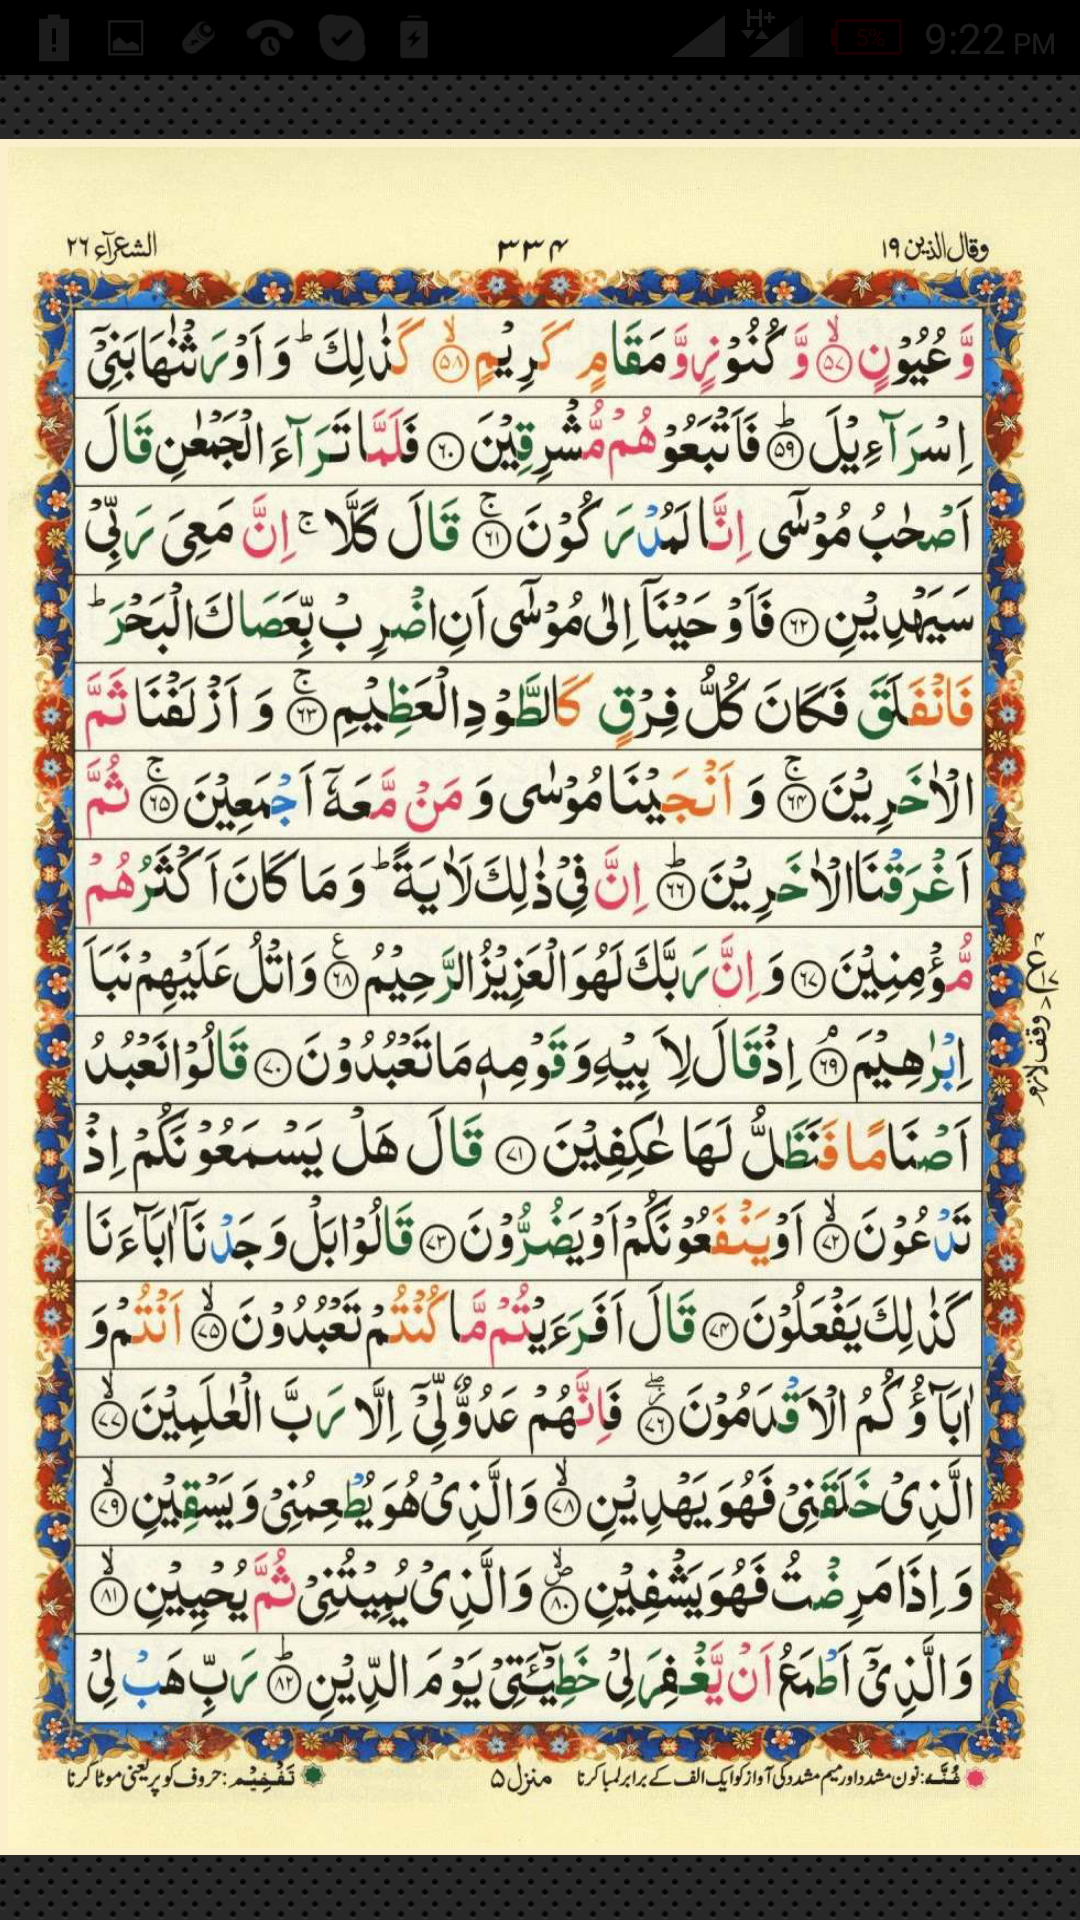 H+
5%
9:22 PM
وقال الذین ۱۹ ۳۳۴ الشعرآء ۲۶
وَّعُيُوۡنٍۙ‏﴿۵۷﴾ وَّكُنُوۡزٍ وَّمَقَامٍ كَرِيۡمٍۙ‏﴿۵۸﴾ كَذٰلِكَؕ وَاَوۡرَثۡنٰهَا بَنِىۡۤ
اِسۡرَآءِيۡلَؕ‏﴿۵۹﴾ فَاَتۡبَعُوۡهُمۡ مُّشۡرِقِيۡنَ‏﴿۶۰﴾ فَلَمَّا تَرَآءَ الۡجَمۡعٰنِ قَالَ
اَصۡحٰبُ مُوۡسٰٓى اِنَّا لَمُدۡرَكُوۡنَۚ‏﴿۶۱﴾ قَالَ كَلَّاۚ اِنَّ مَعِىَ رَبِّىۡ
سَيَهۡدِيۡنِ‏﴿۶۲﴾ فَاَوۡحَيۡنَاۤ اِلٰى مُوۡسٰٓى اَنِ اضۡرِبْ بِّعَصَاكَ الۡبَحۡرَؕ
فَانْفَلَقَ فَكَانَ كُلُّ فِرۡقٍ كَالطَّوۡدِ الۡعَظِيۡمِۚ‏﴿۶۳﴾ وَاَزۡلَفۡنَا ثَمَّ
الۡاٰخَرِيۡنَۚ‏﴿۶۴﴾ وَاَنۡجَيۡنَا مُوۡسٰى وَمَنۡ مَّعَهٗۤ اَجۡمَعِيۡنَۚ‏﴿۶۵﴾ ثُمَّ
اَغۡرَقۡنَا الۡاٰخَرِيۡنَؕ‏﴿۶۶﴾ اِنَّ فِىۡ ذٰلِكَ لَاٰيَةًؕ وَمَا كَانَ اَكۡثَرُهُمۡ
مُّؤۡمِنِيۡنَ‏﴿۶۷﴾ وَاِنَّ رَبَّكَ لَهُوَ الۡعَزِيۡزُ الرَّحِيۡمُ‏﴿۶۸﴾ع وَاتۡلُ عَلَيۡهِمۡ نَبَاَ
اِبۡرٰهِيۡمَۘ‏﴿۶۹﴾ اِذۡ قَالَ لِاَبِيۡهِ وَقَوۡمِهٖ مَا تَعۡبُدُوۡنَ‏﴿۷۰﴾ قَالُوۡا نَعۡبُدُ
اَصۡنَامًا فَنَظَلُّ لَهَا عٰكِفِيۡنَ‏﴿۷۱﴾ قَالَ هَلۡ يَسۡمَعُوۡنَكُمۡ اِذۡ
تَدۡعُوۡنَۙ‏﴿۷۲﴾ اَوۡ يَنۡفَعُوۡنَكُمۡ اَوۡ يَضُرُّوۡنَ‏﴿۷۳﴾ قَالُوۡا بَلۡ وَجَدۡنَاۤ اٰبَآءَنَا
كَذٰلِكَ يَفۡعَلُوۡنَ‏﴿۷۴﴾ قَالَ اَفَرَءَيۡتُمۡ مَّا كُنۡتُمۡ تَعۡبُدُوۡنَۙ‏﴿۷۵﴾ اَنۡتُمۡ وَ
اٰبَآؤُكُمُ الۡاَقۡدَمُوۡنَ‏﴿۷۶﴾ فَاِنَّهُمۡ عَدُوٌّ لِّىۡۤ اِلَّا رَبَّ الۡعٰلَمِيۡنَۙ‏﴿۷۷﴾
الَّذِىۡ خَلَقَنِىۡ فَهُوَ يَهۡدِيۡنِۙ‏﴿۷۸﴾ وَالَّذِىۡ هُوَ يُطۡعِمُنِىۡ وَيَسۡقِيۡنِۙ‏﴿۷۹﴾
وَاِذَا مَرِضۡتُ فَهُوَ يَشۡفِيۡنِ‏﴿۸۰﴾ وَالَّذِىۡ يُمِيۡتُنِىۡ ثُمَّ يُحۡيِيۡنِۙ‏﴿۸۱﴾
وَالَّذِىۡۤ اَطۡمَعُ اَنۡ يَّغۡفِرَ لِىۡ خَطِيۡٓئَتِىۡ يَوۡمَ الدِّيۡنِؕ‏﴿۸۲﴾ رَبِّ هَبۡ لِىۡ
وقف لازم
غُنَّہ: نون مشدد اور میم مشدد کی آواز کو ایک الف کے برابر لمبا کرنا منزل ۵ تَفۡخِیۡم: حروف کو پر یعنی موٹا کرنا